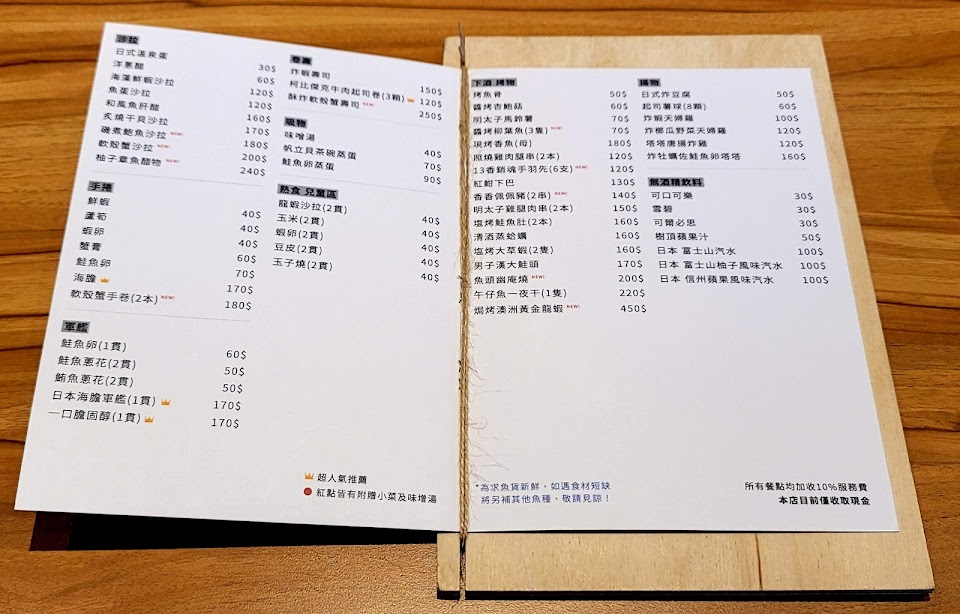 沙拉
日式溫泉蛋 30$
洋蔥醋 60$
海藻鮮蝦沙拉 120$
魚蛋沙拉 120$
和風魚肝醋 160$
炙燒干貝沙拉 170$
磯煮鮑魚沙拉 NEW! 180$
軟殼蟹沙拉 NEW! 200$
柚子章魚醋物 NEW! 240$
手捲
鮮蝦 40$
蘆筍 40$
蝦卵 40$
蟹膏 60$
鮭魚卵 70$
海膽 170$
軟殼蟹手卷(2本) NEW! 180$
軍艦
鮭魚卵(1貫) 60$
鮭魚蔥花(2貫) 50$
鮪魚蔥花(2貫) 50$
日本海膽軍艦(1貫) 170$
一口膽固醇(1貫) 170$
卷壽
炸蝦壽司 150$
柯比傑克牛肉起司卷(3顆) 120$
酥炸軟殼蟹壽司 NEW! 250$
吸物
味噌湯 40$
帆立貝茶碗蒸蛋 70$
鮭魚卵蒸蛋 90$
熟食 兒童區
龍蝦沙拉(2貫) 40$
玉米(2貫) 40$
蝦卵(2貫) 40$
豆皮(2貫) 40$
玉子燒(2貫) 40$
超人氣推薦
紅點皆有附贈小菜及味增湯
下酒 烤物
烤魚骨 50$
醬烤杏鮑菇 60$
明太子馬鈴薯 70$
醬烤柳葉魚(3隻) NEW! 70$
現烤香魚(母) 180$
照燒雞肉腿串(2本) 120$
13香銷魂手羽先(6支) NEW! 120$
紅魽下巴 130$
香香佩佩豬(2串) NEW! 140$
明太子雞腿肉串(2本) 150$
塩烤鮭魚肚(2本) 160$
清酒蒸蛤蠣 160$
塩烤大草蝦(2隻) 160$
男子漢大鮭頭 170$
魚頭幽庵燒 NEW! 200$
午仔魚一夜干(1隻) 220$
焗烤澳洲黃金龍蝦 NEW! 450$
*為求魚貨新鮮，如遇食材短缺
將另補其他魚種，敬請見諒！
揚物
日式炸豆腐 50$
起司薯球(8顆) 60$
炸蝦天婦羅 100$
炸櫛瓜野菜天婦羅 120$
塔塔唐揚炸雞 120$
炸牡蠣佐鮭魚卵塔塔 160$
無酒精飲料
可口可樂 30$
雪碧 30$
可爾必思 30$
樹頂蘋果汁 50$
日本 富士山汽水 100$
日本 富士山柚子風味汽水 100$
日本 信州蘋果風味汽水 100$
所有餐點均加收10%服務費
本店目前僅收取現金